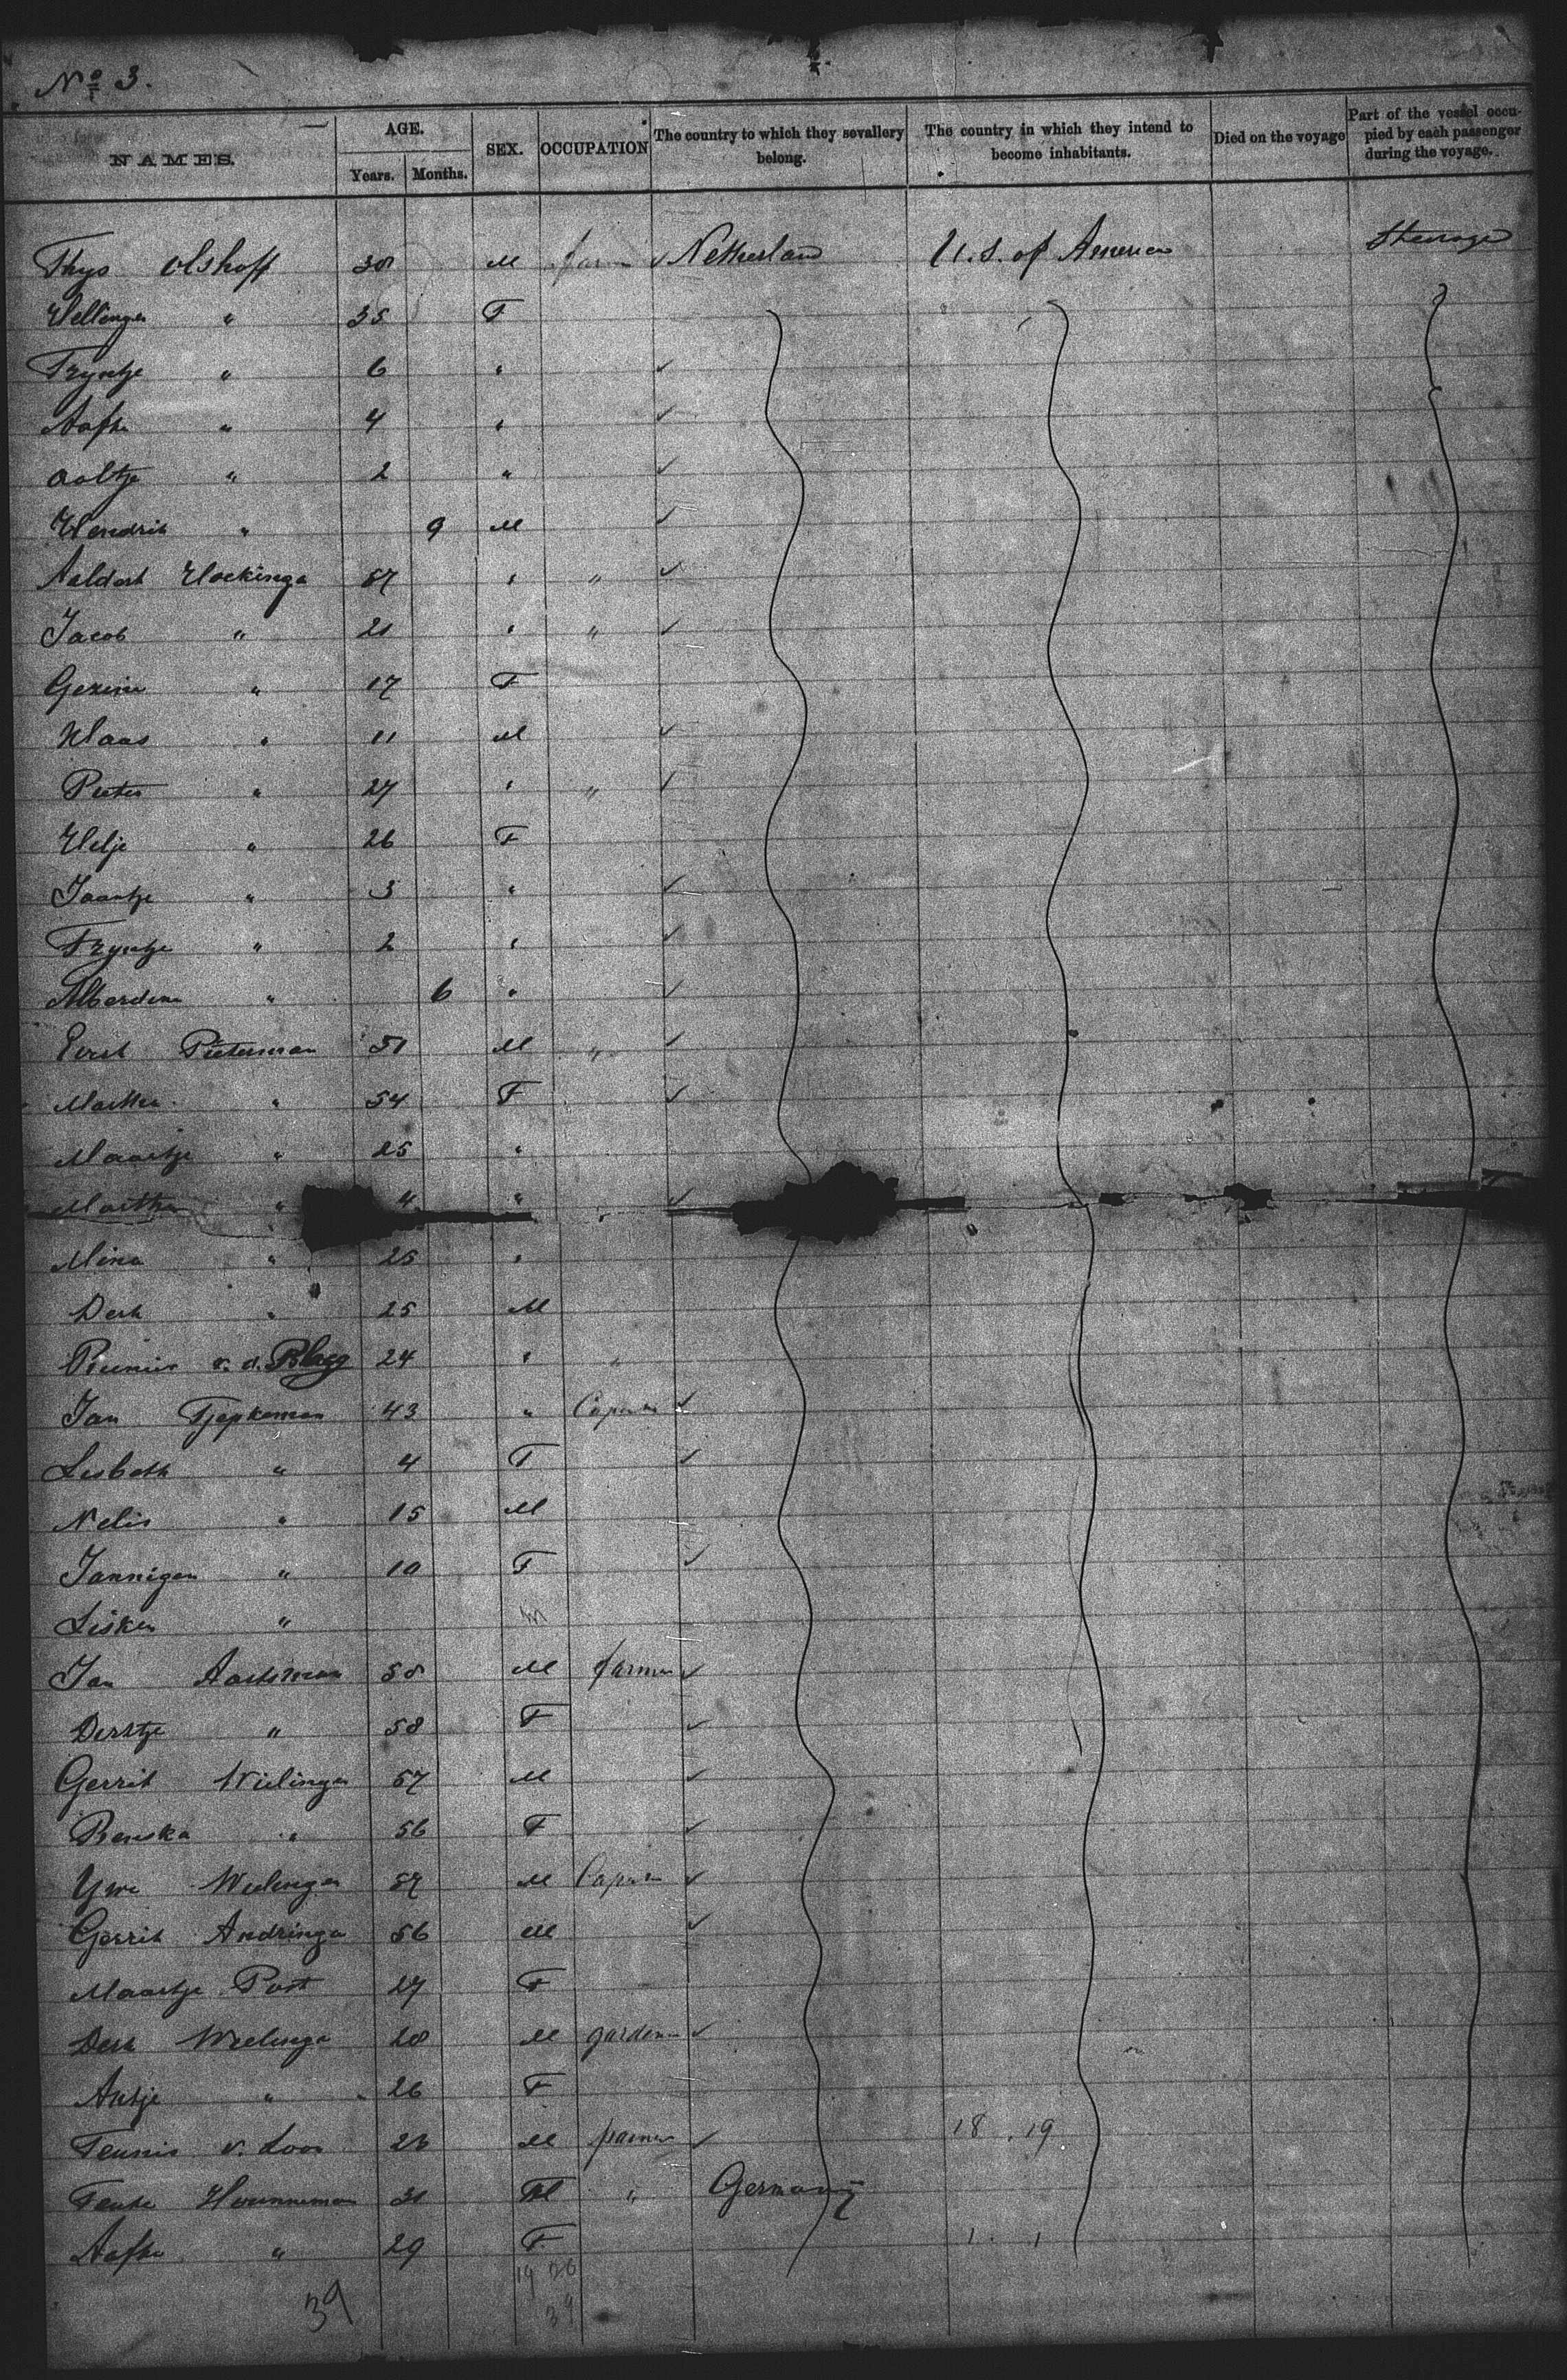 No 3.
NAMES. AGE. Years. Months. SEX. OCCUPATION The country to which they sevallery belong. The country in which they intend to become inhabitants. Died on the voyage Part of the vessel occupied by each passenger during the voyage.
Thys Olshoff 30 M farm Netherland U.S. of America Steerage
Hellinga " 35 F
Tryntje " 6 "
Aafke " 4 "
Aaltje " 2 "
Hendrik " 9 M
Aaldert Hockinga 57 " "
Jacob " 21 " "
Gezina " 17 F
Klaas " 11 M
Pieter " 27 " "
Hilje " 26 F
Jaantje " 3 "
Tryntje " 2 "
Alberdina " 6 "
Evert Pieterman 51 M "
Martha " 54 F
Maartje " 25 "
Martha " 4 "
Mina " 25 "
Derk " 25 M
v. d. Plagg 24 " "
Jan Tjepkeman 43 "
Lisbeth " 4 F
Nelis " 15 M
Jannigen " 10 F
Lisken " M
Jan 58 M farmer
Derktje " 58 F
Gerrit Wielinga 57 M
Renska " 56 F
Wielinga 57 M
Gerrit Andringa 56 M
Maartje Post 27 F
Derk Wielinga 28 M gardener
Antje " 26 F
Teunis v. Loon 26 M farmer 18 . 19
Hunneman 31 M " Germany
Aafke " 29 F 1 . 1
39 19 20
39